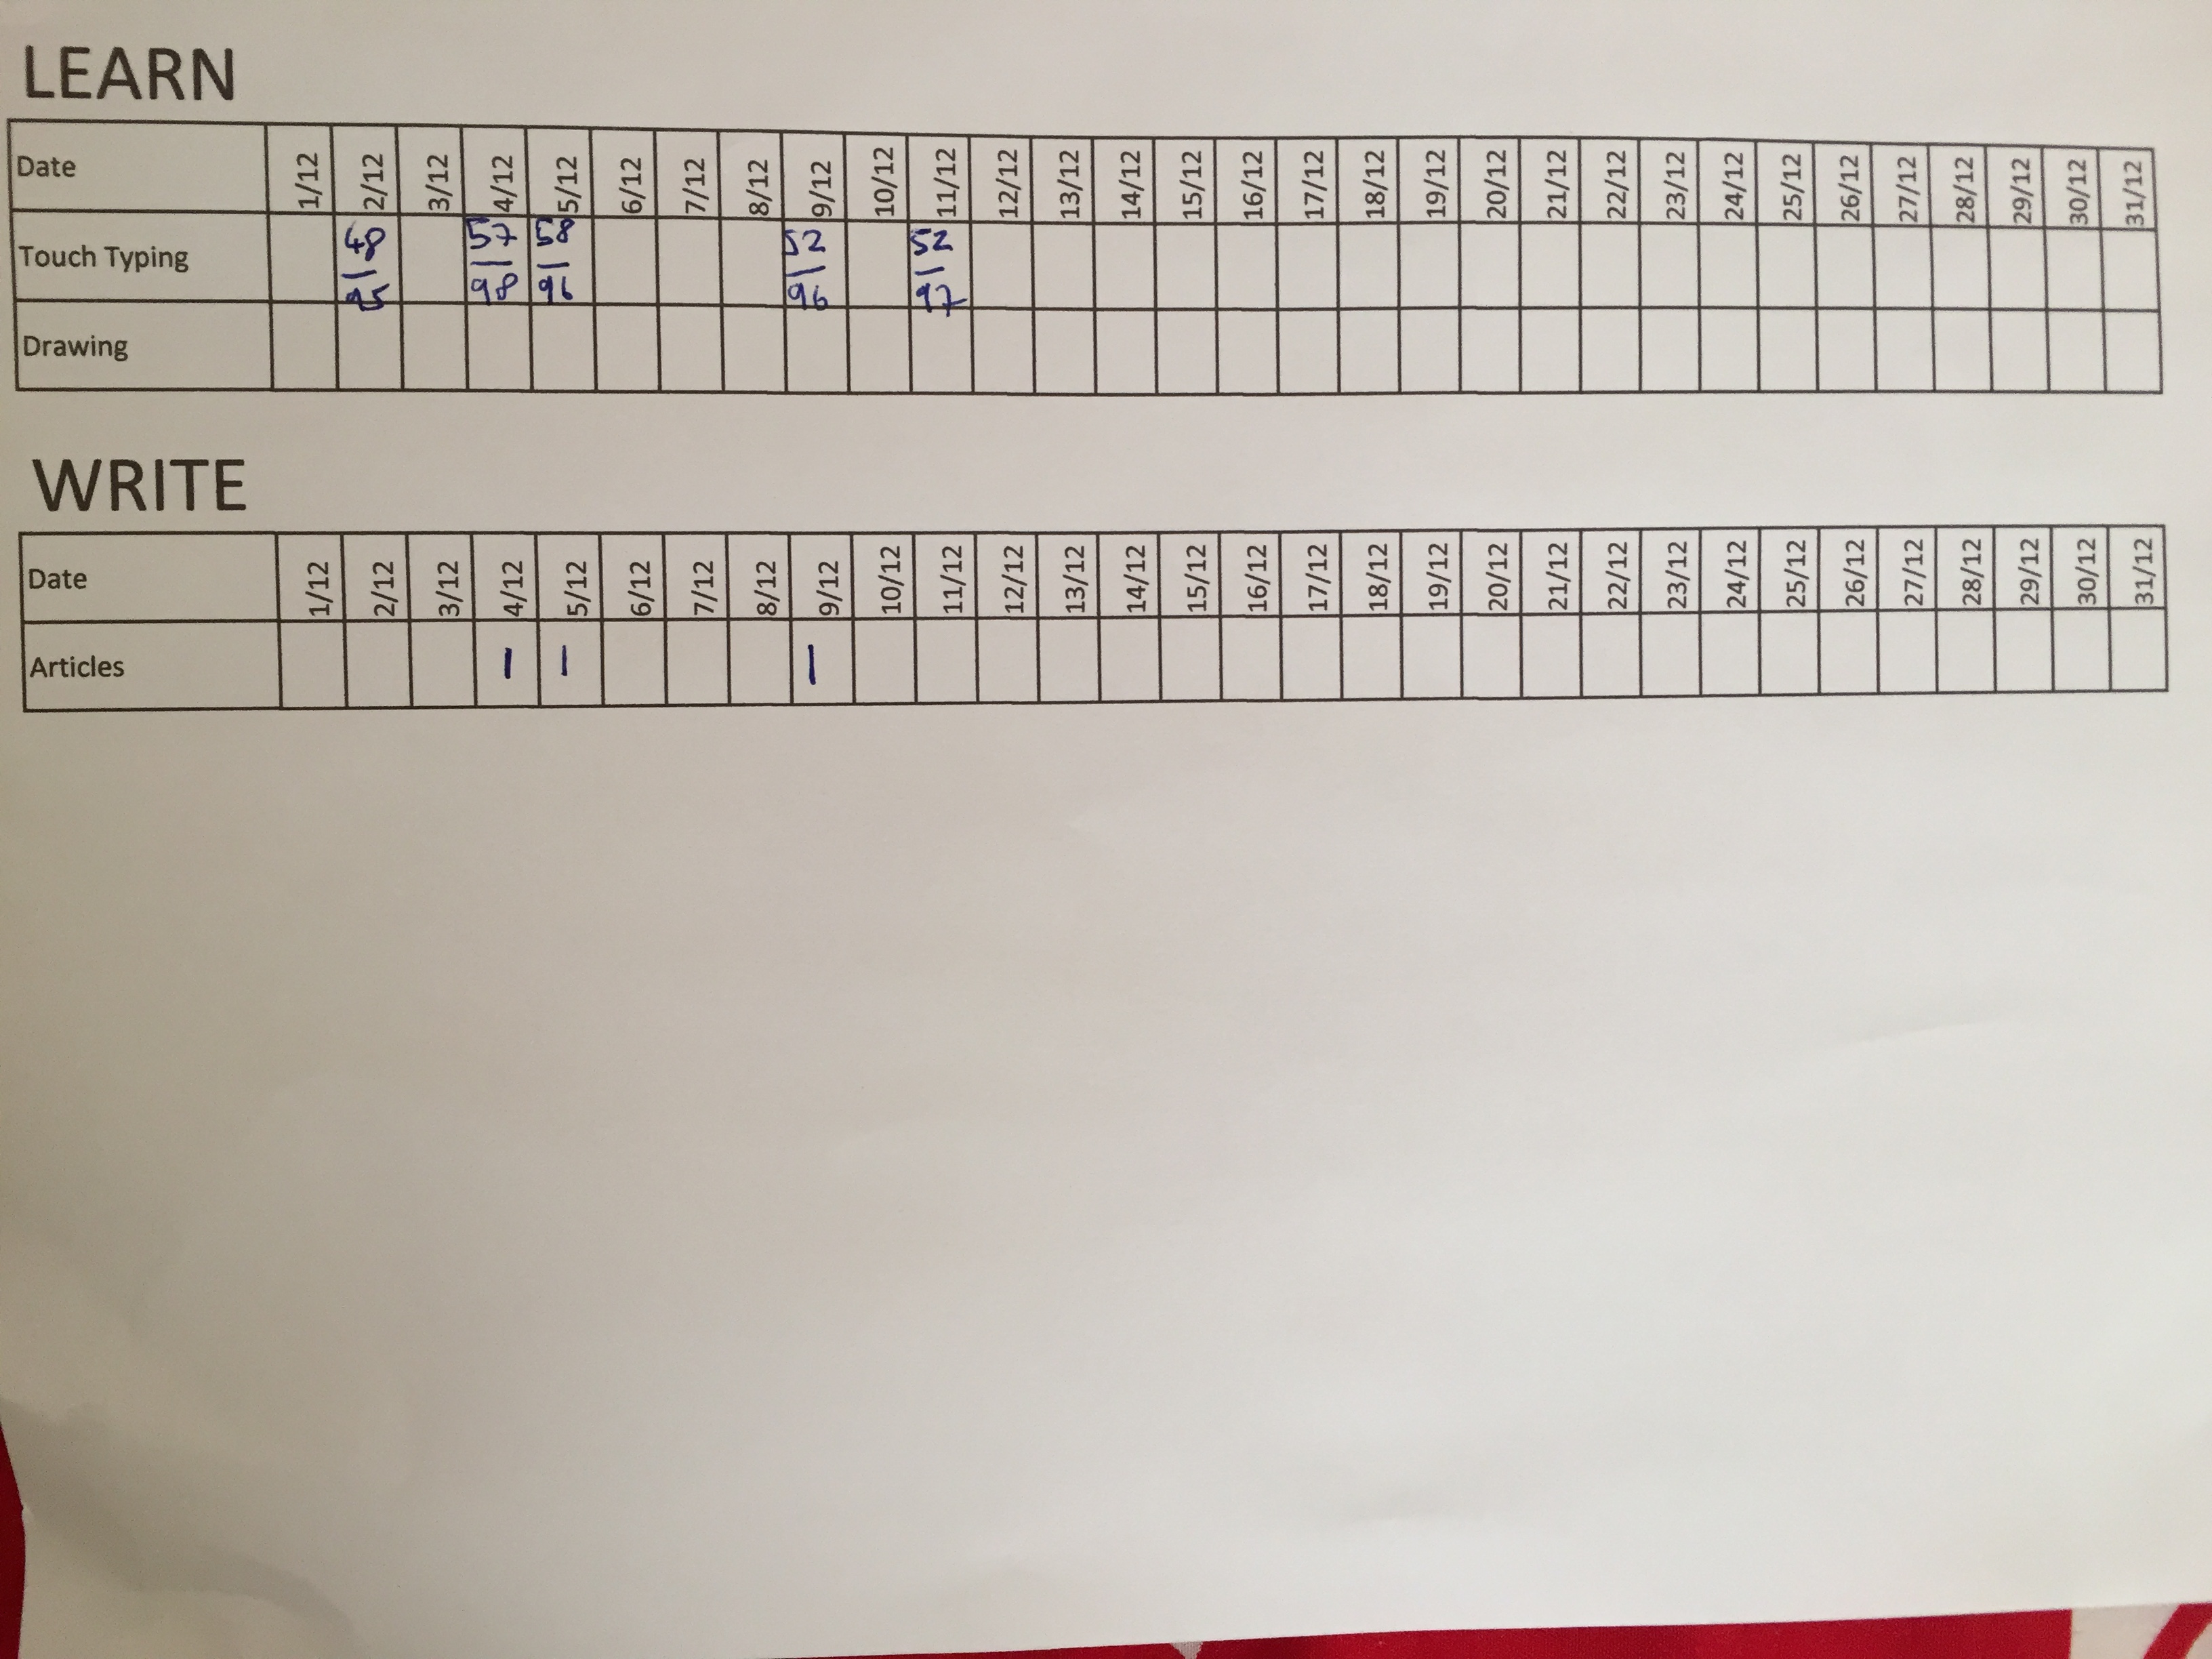 LEARN
Date 1/12 2/12 3/12 4/12 5/12 6/12 7/12 8/12 9/12 10/12 11/12 12/12 13/12 14/12 15/12 16/12 17/12 18/12 19/12 20/12 21/12 22/12 23/12 24/12 25/12 26/12 27/12 28/12 29/12 30/12 31/12
Touch Typing 48/95 57/98 58/96 52/96 52/97
Drawing
WRITE
Date 1/12 2/12 3/12 4/12 5/12 6/12 7/12 8/12 9/12 10/12 11/12 12/12 13/12 14/12 15/12 16/12 17/12 18/12 19/12 20/12 21/12 22/12 23/12 24/12 25/12 26/12 27/12 28/12 29/12 30/12 31/12
Articles 1 1 1